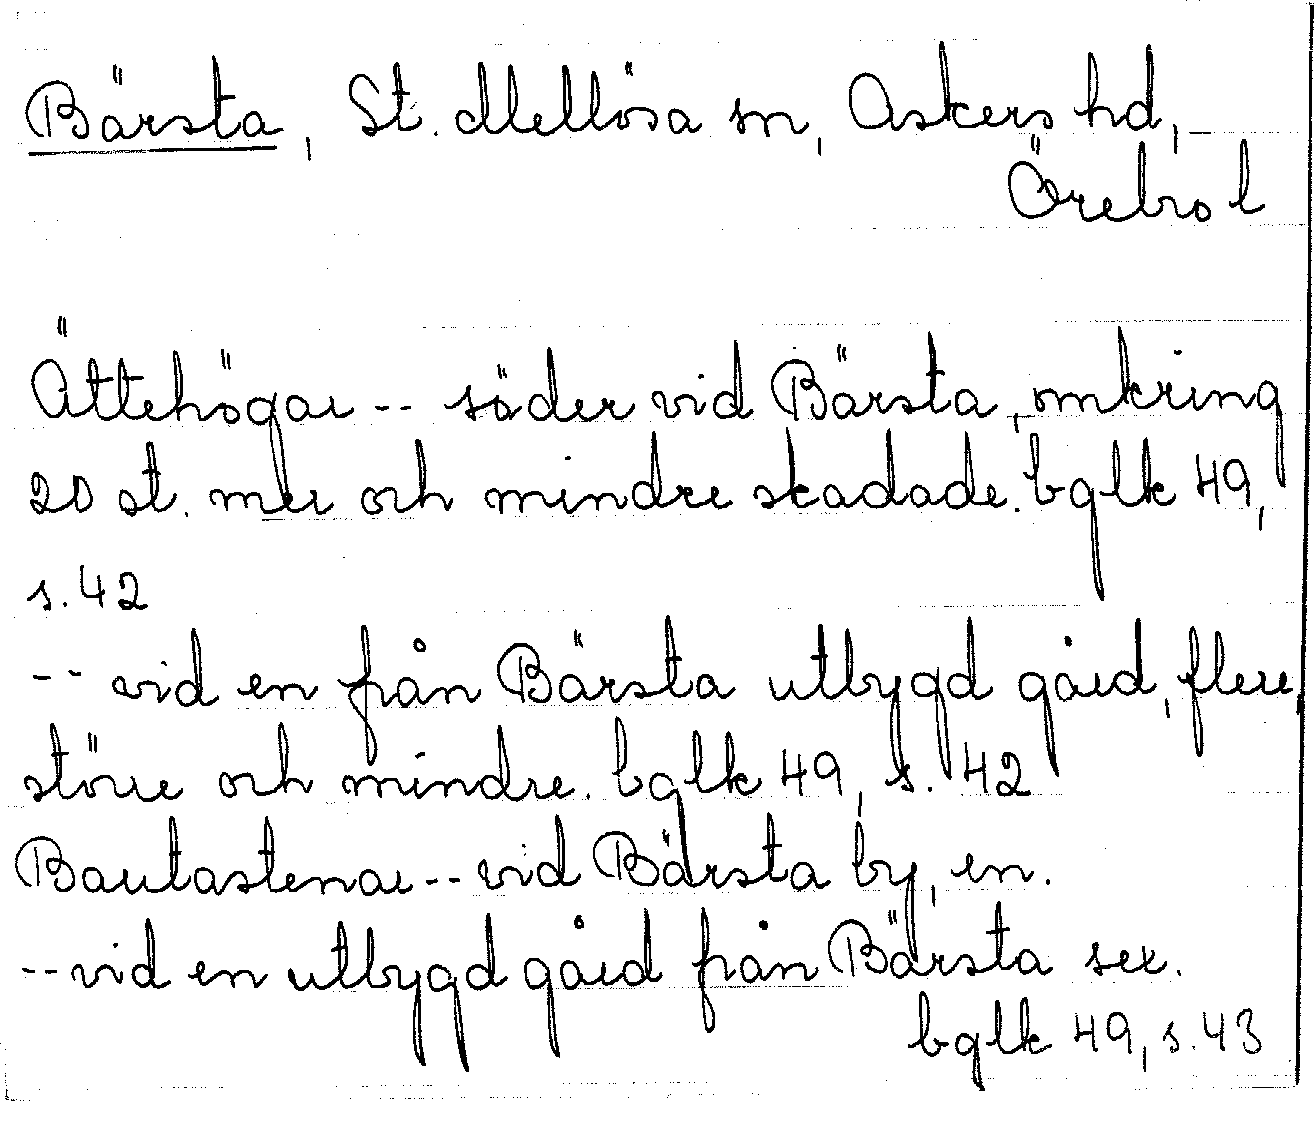 Bärsta, St. Mellösa sn, Askers hd,
Örebro l
Ättehögar -- söder vid Bärsta, omkring
20 st. mer och mindre skadade. bglk 49,
s. 42
-- vid en från Bärsta utbygd gård, flere
större och mindre. bglk 49, s. 42
Bautastenar -- vid Bärsta by, en.
-- vid en utbygd gård från Bärsta sex.
bglk 49, s. 43